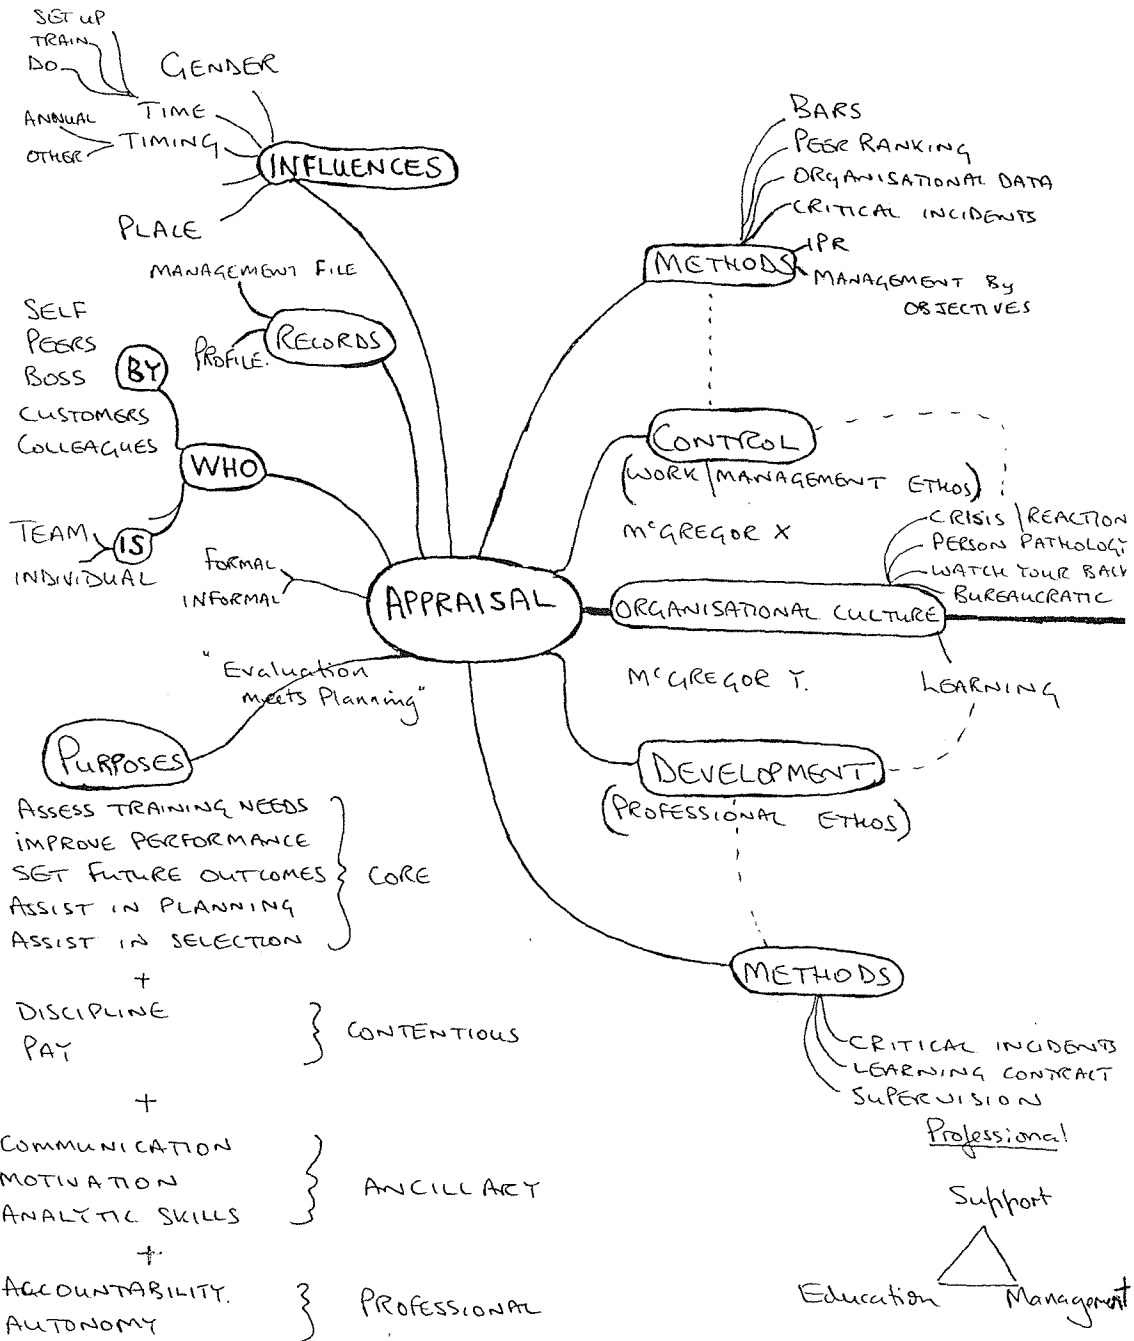 SET UP
TRAIN
DO
GENDER
TIME
ANNUAL
OTHER
TIMING
INFLUENCES
PLACE
MANAGEMENT FILE
RECORDS
PROFILE.
SELF
PEERS
BOSS
BY
CUSTOMERS
COLLEAGUES
WHO
TEAM
IS
INDIVIDUAL
FORMAL
INFORMAL
APPRAISAL
"Evaluation
meets Planning"
PURPOSES
ASSESS TRAINING NEEDS
IMPROVE PERFORMANCE
SET FUTURE OUTCOMES
ASSIST IN PLANNING
ASSIST IN SELECTION
CORE
+
DISCIPLINE
PAY
CONTENTIOUS
+
COMMUNICATION
MOTIVATION
ANALYTIC SKILLS
ANCILLARY
+
ACCOUNTABILITY.
AUTONOMY
PROFESSIONAL
BARS
PEER RANKING
ORGANISATIONAL DATA
CRITICAL INCIDENTS
IPR
METHODS
MANAGEMENT By
OBJECTIVES
CONTROL
(WORK/MANAGEMENT ETHOS)
McGREGOR X
CRISIS/REACTION
PERSON PATHOLOGY
WATCH YOUR BACK
BUREAUCRATIC
ORGANISATIONAL CULTURE
McGREGOR Y.
LEARNING
DEVELOPMENT
(PROFESSIONAL ETHOS)
METHODS
CRITICAL INCIDENTS
LEARNING CONTRACT
SUPERVISION
Professional
Support
Education
Management